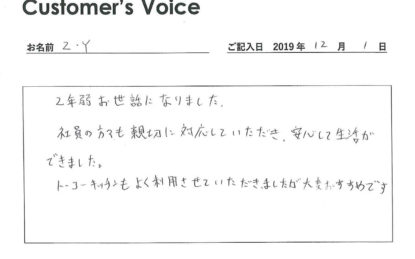 Customer's Voice
お名前 Z・Y ご記入日 2019年 12月 1日
2年弱お世話になりました。
社員の方々も親切に対応していただき、安心して生活が
できました。
トーコーキッチンもよく利用させていただきましたが大変おすすめです